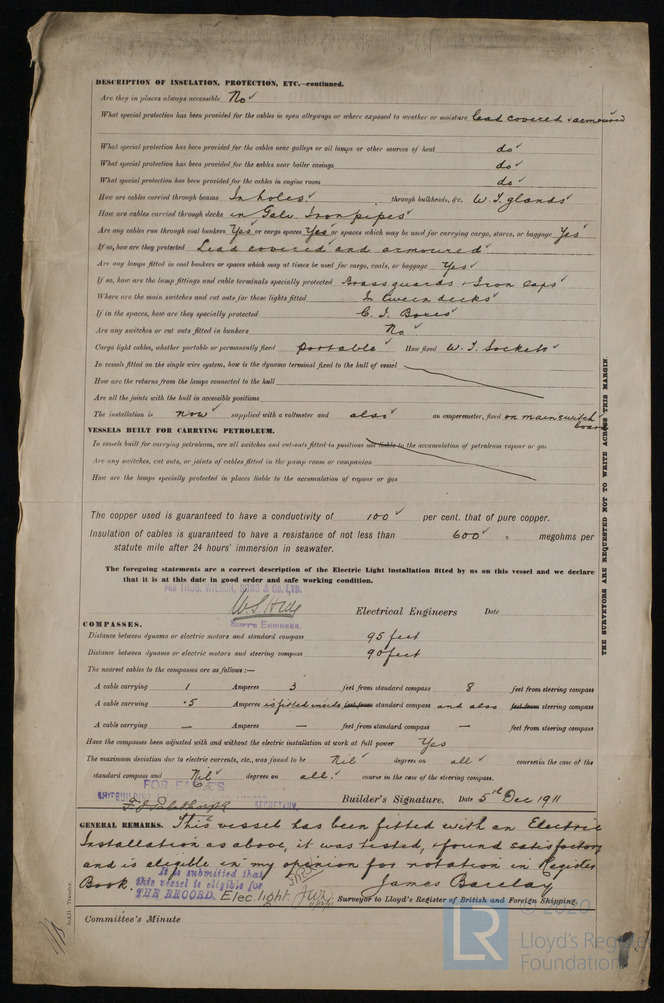 DESCRIPTION OF INSULATION, PROTECTION, ETC.—continued.
Are they in places always accessible No
What special protection has been provided for the cables in open alleyways or where exposed to weather or moisture lead covered & armoured
What special protection has been provided for the cables near galleys or oil lamps or other sources of heat do
What special protection has been provided for the cables near boiler casings do
What special protection has been provided for the cables in engine room do
How are cables carried through beams In holes through bulkheads, &c. W.T. glands
How are cables carried through decks in Galv. Iron pipes
Are any cables run through coal bunkers Yes or cargo spaces Yes or spaces which may be used for carrying cargo, stores, or baggage Yes
If so, how are they protected Lead covered and armoured
Are any lamps fitted in coal bunkers or spaces which may at times be used for cargo, coals, or baggage Yes
If so, how are the lamp fittings and cable terminals specially protected Brass guards & Iron caps
Where are the main switches and cut outs for these lights fitted In tween decks
If in the spaces, how are they specially protected C. I. Boxes
Are any switches or cut outs fitted in bunkers No
Cargo light cables, whether portable or permanently fixed Portable How fixed W.T. Sockets
In vessels fitted on the single wire system, how is the dynamo terminal fixed to the hull of vessel
How are the returns from the lamps connected to the hull
Are all the joints with the hull in accessible positions
The installation is now supplied with a voltmeter and also an amperemeter, fixed on main switch board
VESSELS BUILT FOR CARRYING PETROLEUM.
In vessels built for carrying petroleum, are all switches and cut-outs fitted in positions not liable to the accumulation of petroleum vapour or gas
Are any switches, cut outs, or joints of cables fitted in the pump room or companion
How are the lamps specially protected in places liable to the accumulation of vapour or gas
The copper used is guaranteed to have a conductivity of 100 per cent. that of pure copper.
Insulation of cables is guaranteed to have a resistance of not less than 600 megohms per
statute mile after 24 hours' immersion in seawater.
The foregoing statements are a correct description of the Electric Light installation fitted by us on this vessel and we declare
that it is at this date in good order and safe working condition.
FOR THOS. WILSON, SONS & CO. LTD.
Electrical Engineers Date
SUPT'G ENGINEER.
COMPASSES.
Distance between dynamo or electric motors and standard compass 95 feet
Distance between dynamo or electric motors and steering compass 90 feet
The nearest cables to the compasses are as follows:—
A cable carrying 1 Amperes 3 feet from standard compass 8 feet from steering compass
A cable carrying .5 Amperes is fitted inside feet from standard compass and also feet from steering compass
A cable carrying — Amperes — feet from standard compass — feet from steering compass
Have the compasses been adjusted with and without the electric installation at work at full power Yes
The maximum deviation due to electric currents, etc., was found to be Nil degrees on all course in the case of the
standard compass and Nil degrees on all course in the case of the steering compass.
FOR EARLE'S
SECRETARY.
Builder's Signature. Date 5th Dec 1911
GENERAL REMARKS. This vessel has been fitted with an Electric
Installation as above, it was tested, & found satisfactory
and is eligible in my opinion for notation in Register
Book
It is submitted that
this vessel is eligible for
THE RECORD. Elec. light.
James Barclay
Surveyor to Lloyd's Register of British and Foreign Shipping.
Committee's Minute
THE SURVEYORS ARE REQUESTED NOT TO WRITE ACROSS THIS MARGIN
© 2020
LR
Lloyd's Register
Foundation